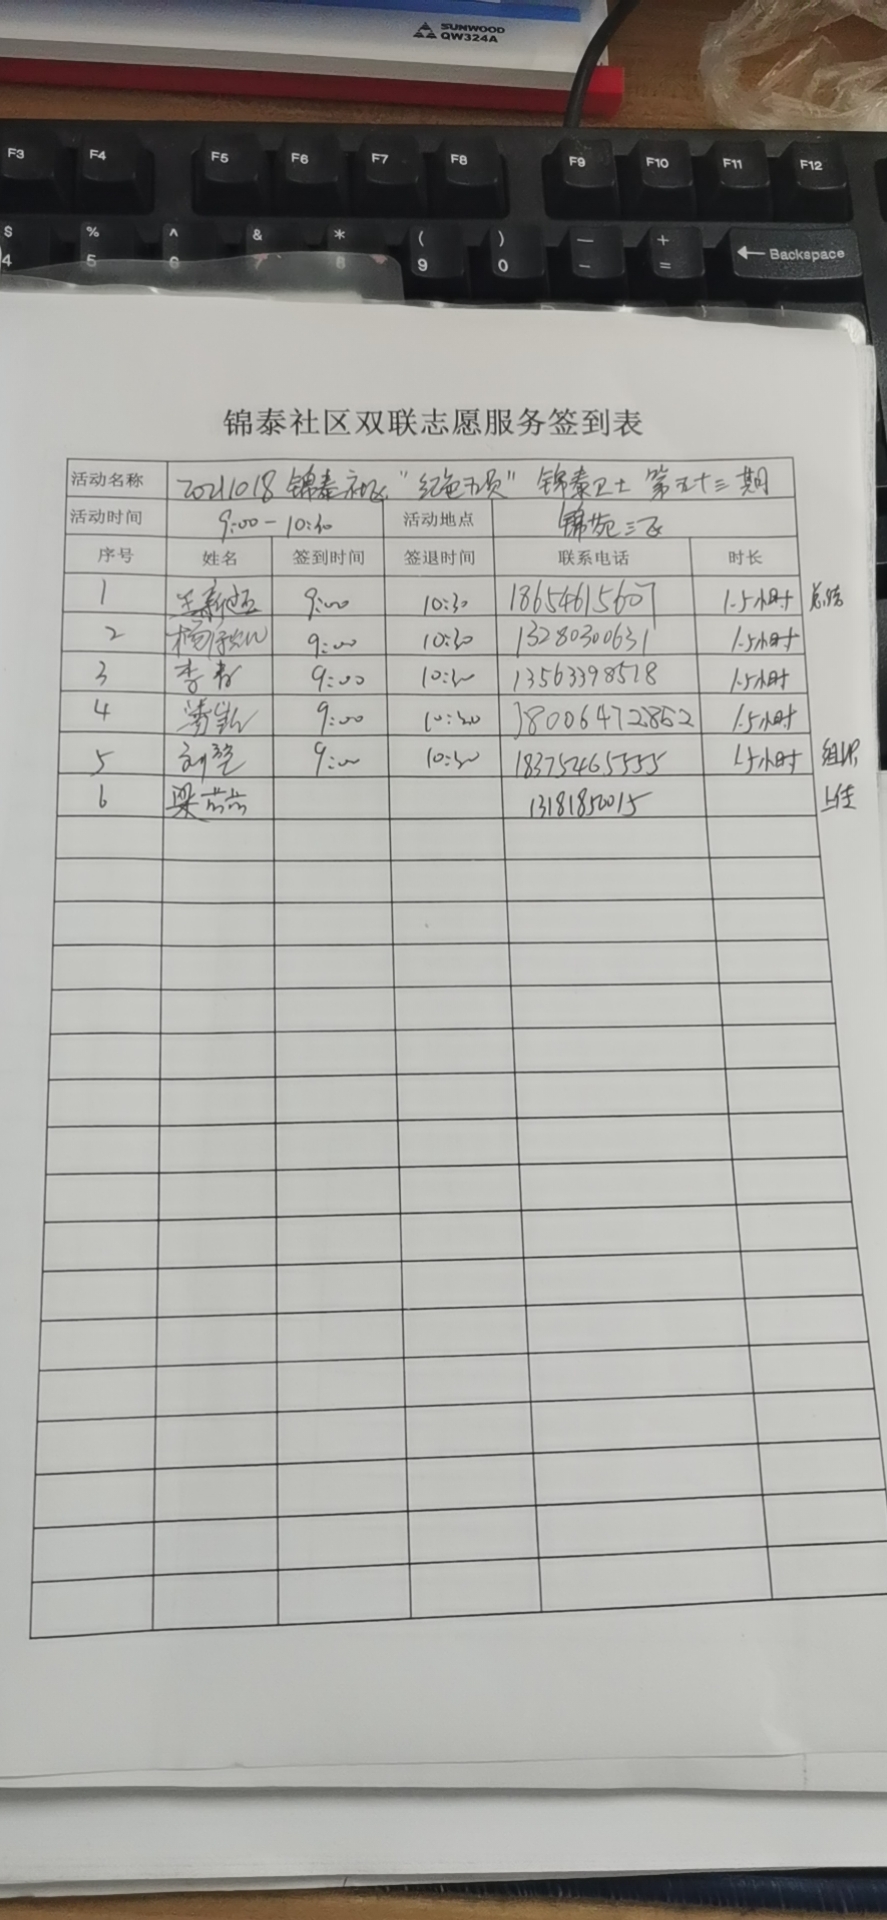 SUNWOOD
QW324A
F3 F4 F5 F6 F7 F8 F9 F10 F11 F12
$ % ^ & * ( ) — +
4 5 6 8 9 0 - = Backspace
锦泰社区双联志愿服务签到表
活动名称 20211018 锦泰社区 "红色 " 锦泰卫士 第五十三期
活动时间 9:00-10:30 活动地点 锦苑三区
序号 姓名 签到时间 签退时间 联系电话 时长
1 9:00 10:30 18654615607 1.5小时 总结
2 9:00 10:30 13280300631 1.5小时
3 李春 9:00 10:30 13563398518 1.5小时
4 9:00 10:30 18006472862 1.5小时
5 刘 9:00 10:30 18375465555 1.5小时 组织
6 梁芸芸 13181850015 上传